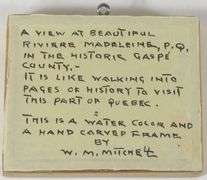 A VIEW AT BEAUTIFUL
RIVIERE MADELEINE, P.Q.
IN THE HISTORIC GASPÉ
COUNTY.-
IT IS LIKE WALKING INTO
PAGES OF HISTORY TO VISIT
THIS PART OF QUEBEC.
THIS IS A WATER COLOR AND
A HAND CARVED FRAME
BY
W. M. MITCHELL